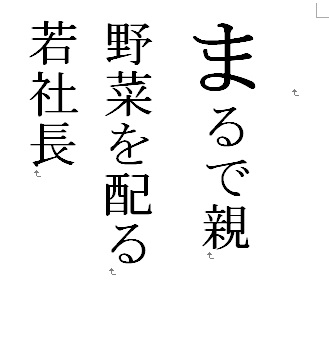 まるで親
野菜を配る
若社長